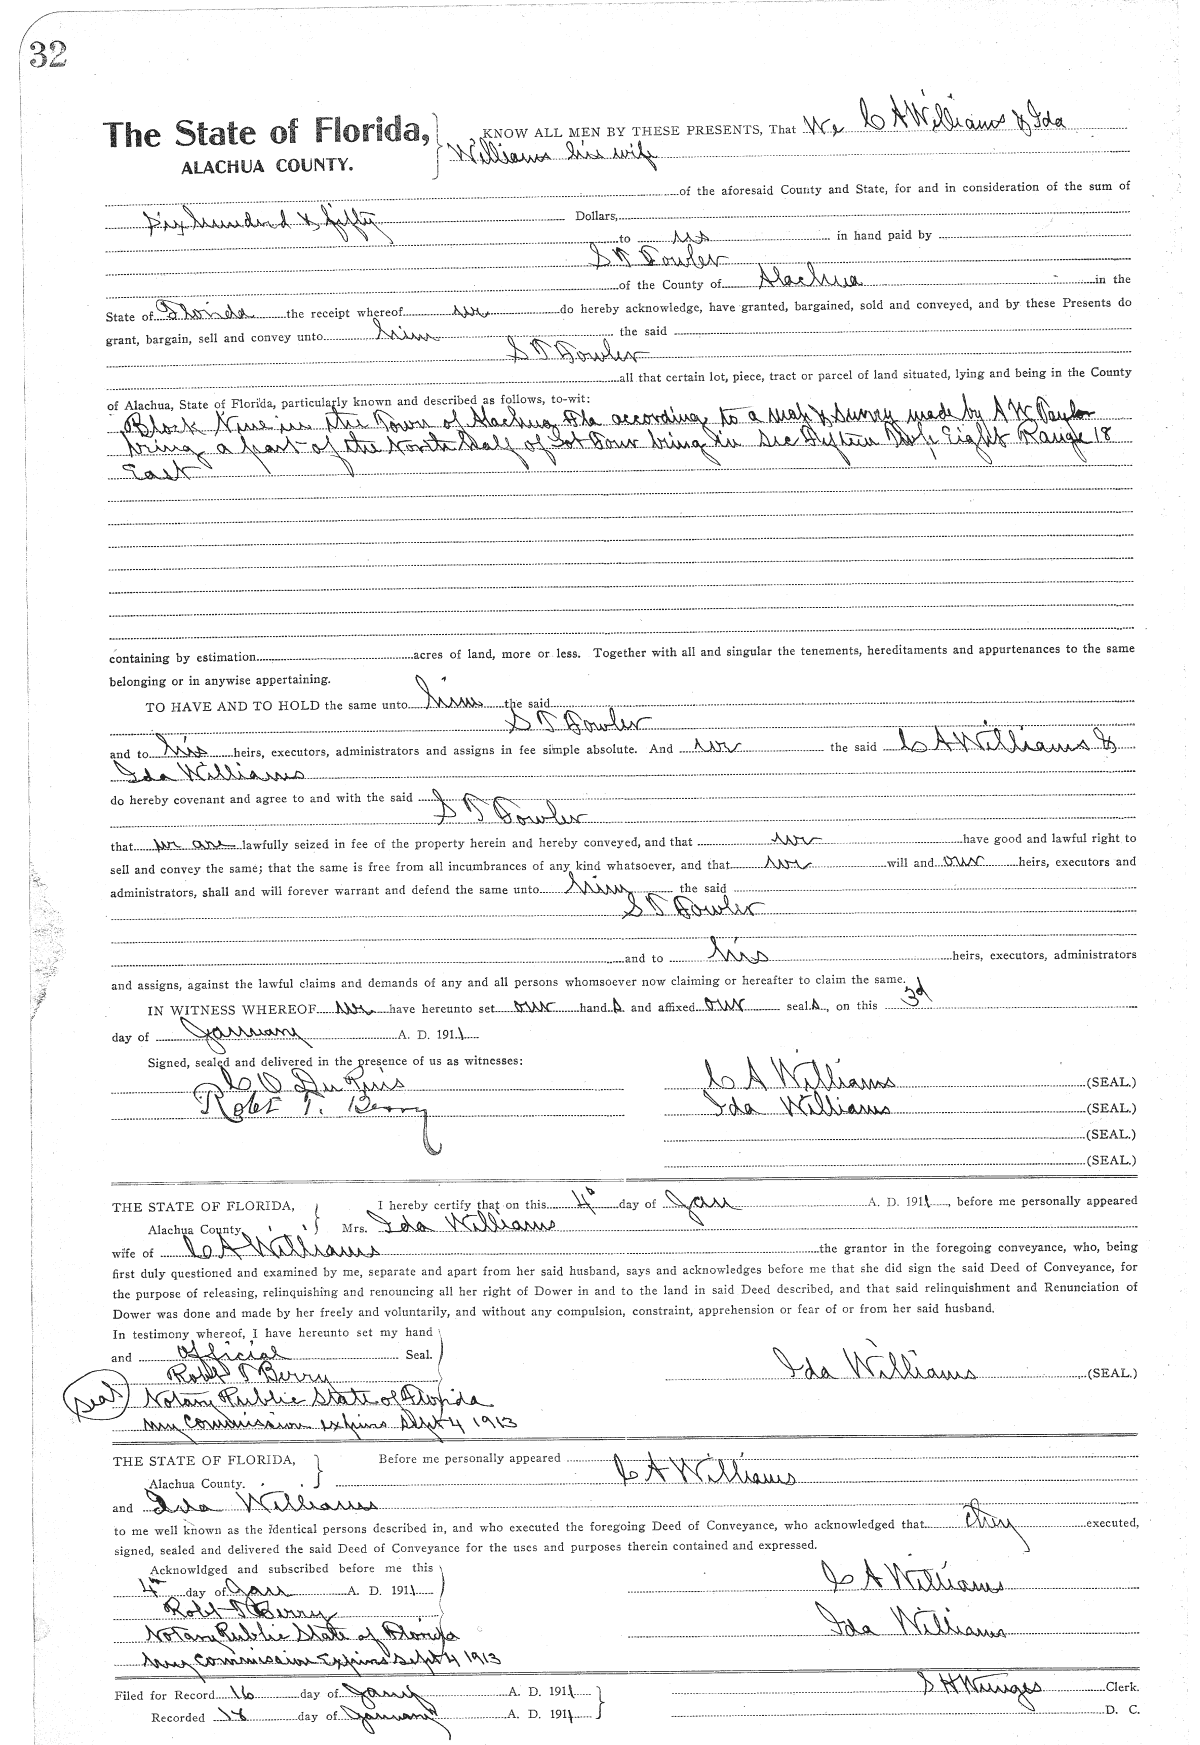 32
The State of Florida, KNOW ALL MEN BY THESE PRESENTS, That We C A Williams & Ida
ALACHUA COUNTY. Williams his wife
of the aforesaid County and State, for and in consideration of the sum of
Six hundred & fifty Dollars,
to us in hand paid by
S T Fowler
of the County of Alachua in the
State of Florida the receipt whereof we do hereby acknowledge, have granted, bargained, sold and conveyed, and by these Presents do
grant, bargain, sell and convey unto him the said
S T Fowler
all that certain lot, piece, tract or parcel of land situated, lying and being in the County
of Alachua, State of Florida, particularly known and described as follows, to-wit:
Block Nine in the Town of Alachua Fla according to a map & Survey made by A W Taylor
being a part of the North Half of Lot Four being in Sec Fifteen Twp Eight Range 18
East
containing by estimation acres of land, more or less. Together with all and singular the tenements, hereditaments and appurtenances to the same
belonging or in anywise appertaining.
TO HAVE AND TO HOLD the same unto him the said
S T Fowler
and to his heirs, executors, administrators and assigns in fee simple absolute. And we the said C A Williams &
Ida Williams
do hereby covenant and agree to and with the said
S T Fowler
that we are lawfully seized in fee of the property herein and hereby conveyed, and that we have good and lawful right to
sell and convey the same; that the same is free from all incumbrances of any kind whatsoever, and that we will and our heirs, executors and
administrators, shall and will forever warrant and defend the same unto him the said
S T Fowler
and to his heirs, executors, administrators
and assigns, against the lawful claims and demands of any and all persons whomsoever now claiming or hereafter to claim the same.
IN WITNESS WHEREOF we have hereunto set our hand s and affixed our seal s, on this 3d
day of January A. D. 1911
Signed, sealed and delivered in the presence of us as witnesses:
C A Williams (SEAL.)
Robt T. Berry Ida Williams (SEAL.)
(SEAL.)
(SEAL.)
THE STATE OF FLORIDA, I hereby certify that on this 4th day of Jan A. D. 1911, before me personally appeared
Alachua County. Mrs. Ida Williams
wife of C A Williams the grantor in the foregoing conveyance, who, being
first duly questioned and examined by me, separate and apart from her said husband, says and acknowledges before me that she did sign the said Deed of Conveyance, for
the purpose of releasing, relinquishing and renouncing all her right of Dower in and to the land in said Deed described, and that said relinquishment and Renunciation of
Dower was done and made by her freely and voluntarily, and without any compulsion, constraint, apprehension or fear of or from her said husband.
In testimony whereof, I have hereunto set my hand
and official Seal.
Robt T Berry Ida Williams (SEAL)
(seal) Notary Public State of Florida
my commission expires Sept 4 1913
THE STATE OF FLORIDA, Before me personally appeared
Alachua County. C A Williams
and Ida Williams
to me well known as the identical persons described in, and who executed the foregoing Deed of Conveyance, who acknowledged that they executed,
signed, sealed and delivered the said Deed of Conveyance for the uses and purposes therein contained and expressed.
Acknowldged and subscribed before me this
4th day of Jan A. D. 1911 C A Williams
Robt T Berry
Notary Public State of Florida Ida Williams
my commission Expires Sept 4 1913
Filed for Record 16 day of Jany A. D. 1911 S H Wienges Clerk.
Recorded 18 day of January A. D. 1911 D. C.